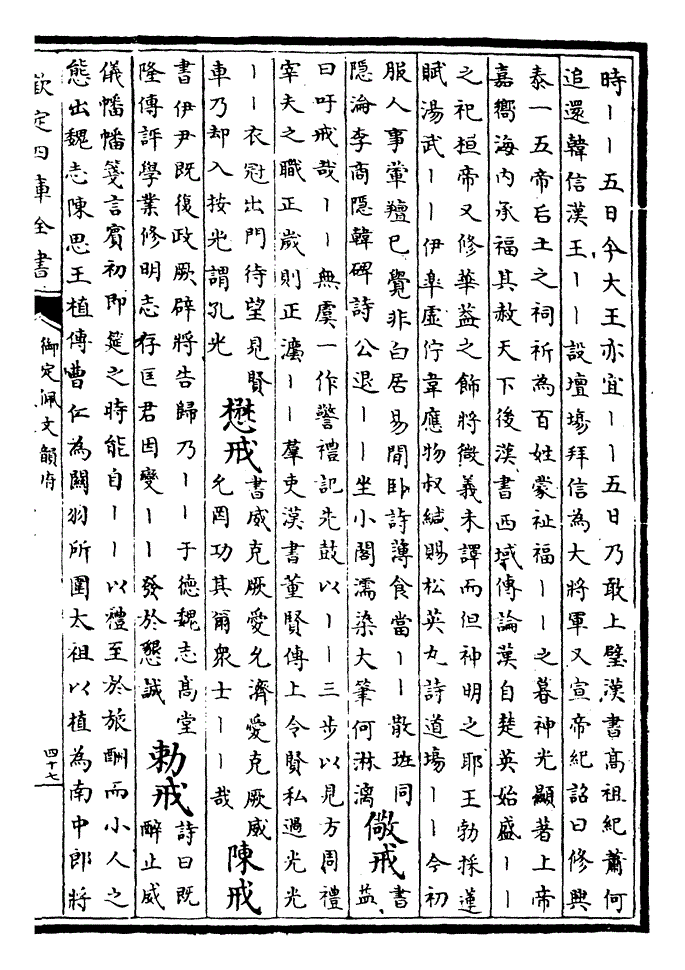 時丨丨五日今大王亦宜丨丨五日乃敢上璧漢書高祖紀蕭何
追還韓信漢王丨丨設壇場拜信為大將軍又宣帝紀詔曰修興
泰一五帝后土之祠祈為百姓蒙祉福丨丨之暮神光顯著上帝
嘉嚮海内承福其赦天下後漢書西域傳論漢自楚英始盛丨丨
之祀桓帝又修華葢之飾將微義未譯而但神明之耶王勃採蓮
賦湯武丨丨伊臯虚佇韋應物叔緘賜松英丸詩道場丨丨今初
服人事葷羶已覺非白居易閒卧詩薄食當丨丨散班同
隱淪李商隱韓碑詩公退丨丨坐小閣濡染大筆何淋漓
儆戒
書
益
曰吁戒哉丨丨無虞一作警禮記先鼓以丨丨三步以見方周禮
宰夫之職正嵗則正灋丨丨羣吏漢書董賢傳上令賢私過光光
丨丨衣冠出門待望見賢
車乃却入按光謂孔光
懋戒
書威克厥愛允濟愛克厥威
允罔功其爾衆士丨丨哉
陳戒
書伊尹既復政厥辟將告歸乃丨丨于德魏志髙堂
隆傳評學業修明志存匡君因變丨丨發於懇誠
勅戒
詩曰既
醉止威
儀幡幡箋言賓初即筵之時能自丨丨以禮至於旅酬而小人之
態出魏志陳思王植傳曹仁為關羽所圍太祖以植為南中郎將
欽定四庫全書
御定佩文韻府
四十七